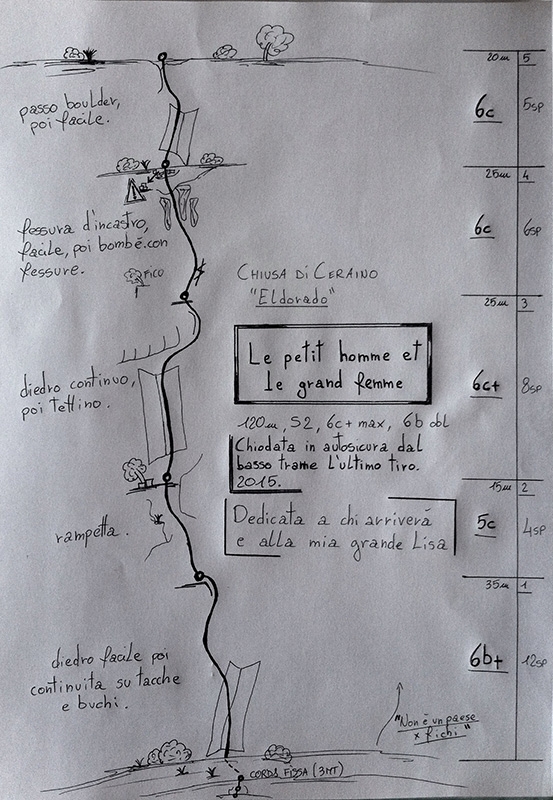 20m 5
passo boulder,
poi facile.
6c 5sp
25m 4
fessura d'incastro,
facile, poi bombé con
fessure.
6c 6sp
FICO
CHIUSA DI CERAINO
"Eldorado"
25m 3
Le petit homme et
le grand femme
diedro continuo,
poi tettino.
6c+ 8sp
120m, S2, 6c+ max, 6b obl
Chiodata in autosicura dal
basso trame l'ultimo tiro.
2015.
15m 2
Dedicata a chi arriverá
e alla mia grande Lisa
rampetta.
5c 4sp
35m 1
diedro facile poi
continuita su tacche
e buchi.
6b+ 12sp
"Non è un paese
x fichi"
CORDA FISSA (3MT)